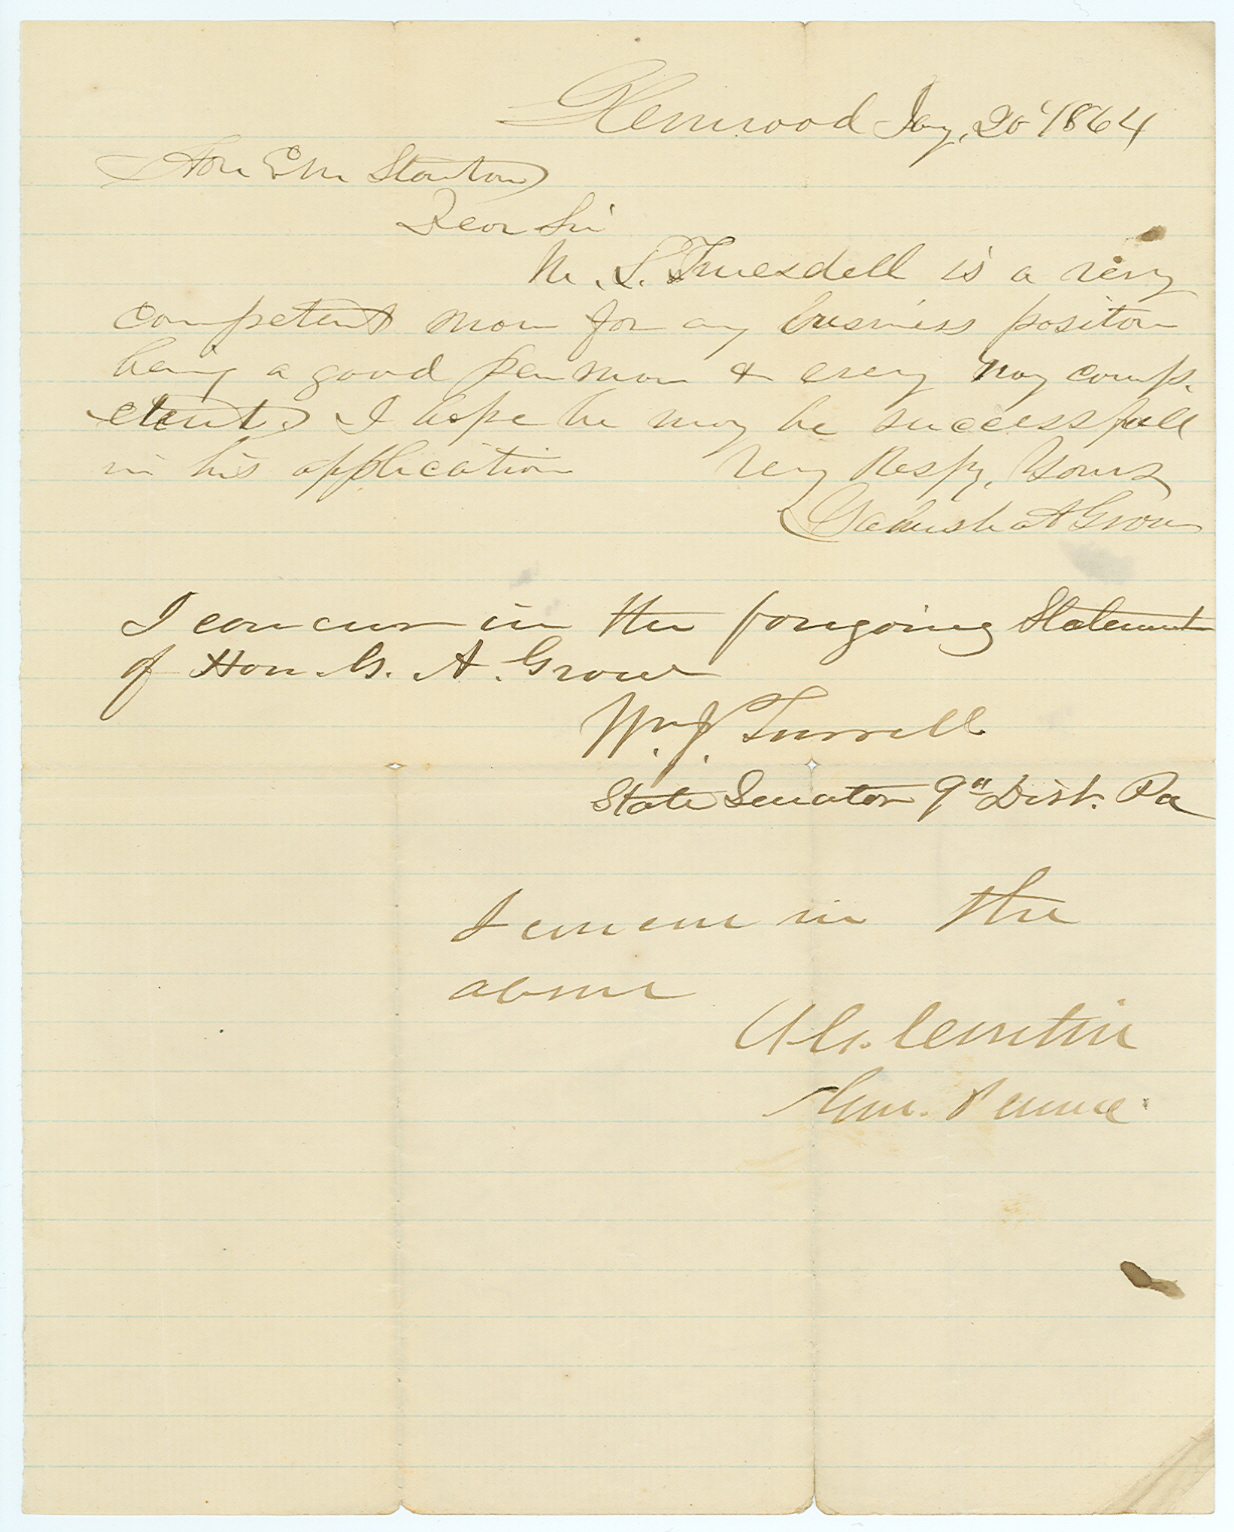 Glenwood Jany, 20 1864
Hon E M Stanton
Dear Sir
M. S. Truesdell is a very
competent man for any business position
being a good penman & every way comp-
etent I hope he may be successfull
in his application Very Respy, Yours
Galusha A Grow
I concur in the forgoing Statement
of Hon. G. A. Grow
Wm J. Turrell
State Senator 9th Dist. Pa
I concur in the
above
A G. Curtin